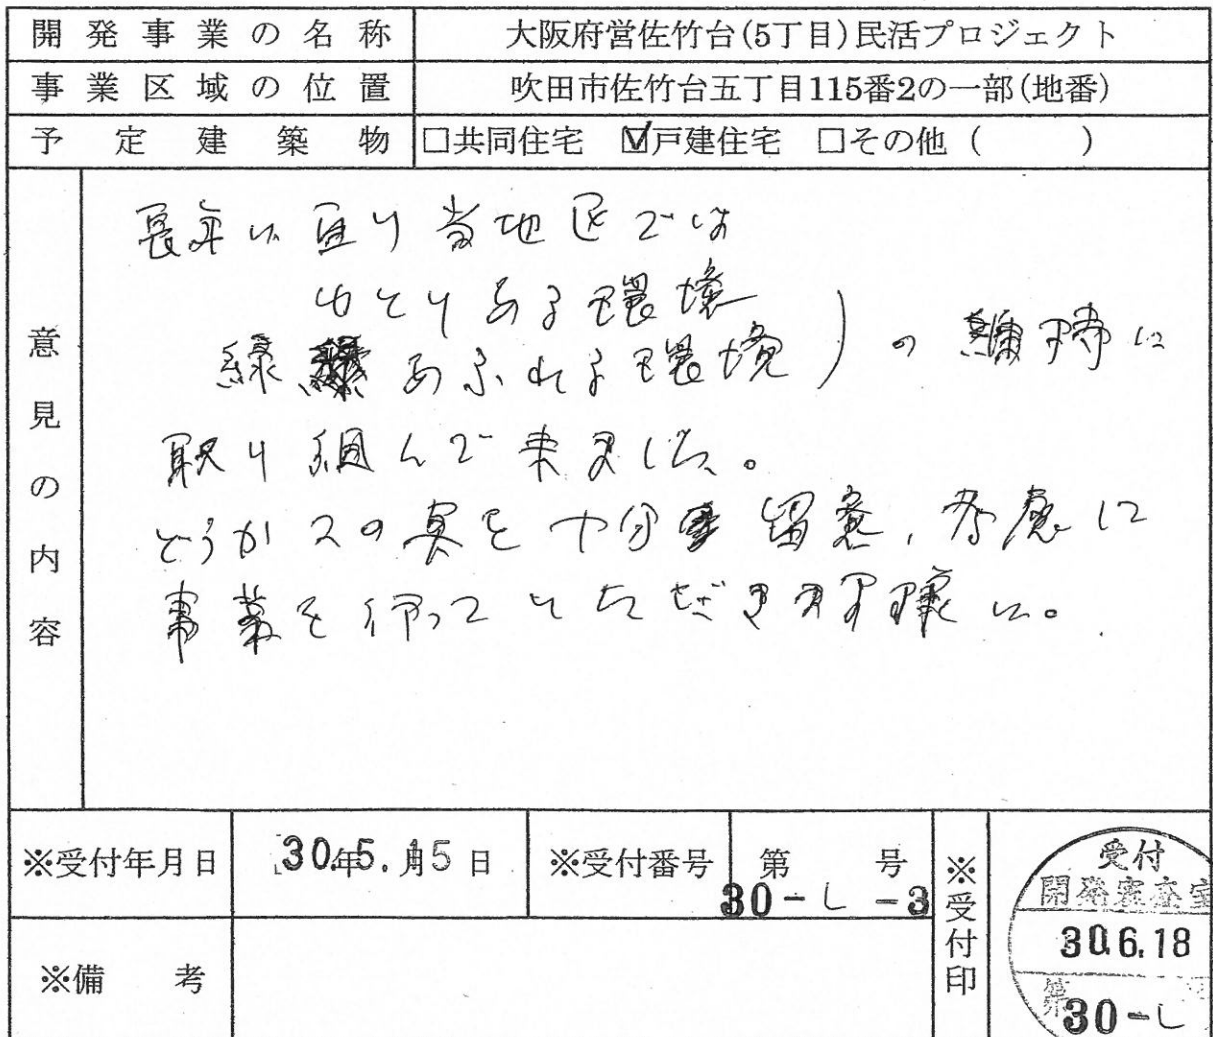 開発事業の名称 大阪府営佐竹台(5丁目)民活プロジェクト
事業区域の位置 吹田市佐竹台五丁目115番2の一部(地番)
予定建築物 □共同住宅 ☑戸建住宅 □その他 ( )
意見の内容
長年に亘り当地区では
ゆとりある環境
緑 あふれる環境 ) の 維持に
取り組んで来ました。
どうかこの点を十分 留意、考慮に
事業を行っていただきます様に。
※受付年月日 30年5.月15日 ※受付番号 第 号
30-し-3
※備考
※受付印
受付
開発審査室
30.6.18
第
30-し